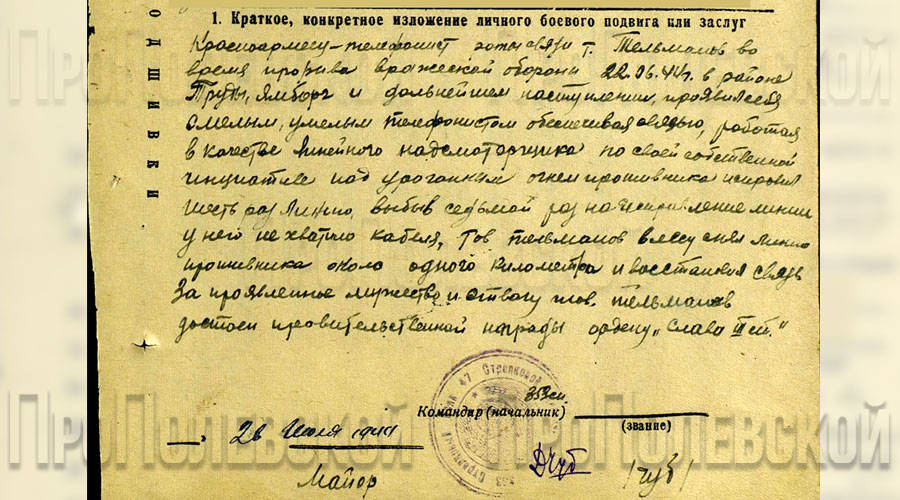 ПОДШИВКИ
1. Краткое, конкретное изложение личного боевого подвига или заслуг
Красноармеец-телефонист роты связи т. Тельманов во
время прорыва вражеской обороны 22.06.44г. в районе
и дальнейшем наступлении, проявил себя
смелым, умелым телефонистом обеспечивая связью, работая
в качестве линейного надсмотрщика по своей собственной
инициативе под ураганным огнем противника исправил
шесть раз линию, выбыв седьмой раз на исправление линии
у него не хватило кабеля, Тов. Тельманов в лесу снял линию
противника около одного километра и восстановил связь
За проявленное мужество и отвагу тов. Тельманов
достоин правительственной награды ордену „Слава III ст."
353 сп.
Командир (начальник)
(звание)
47 Стрелковой
353
26 Июля 1944
Майор
/Чуб/
ПроПолевской
ПроПолевской
ПроПолевской
ПроПолевской